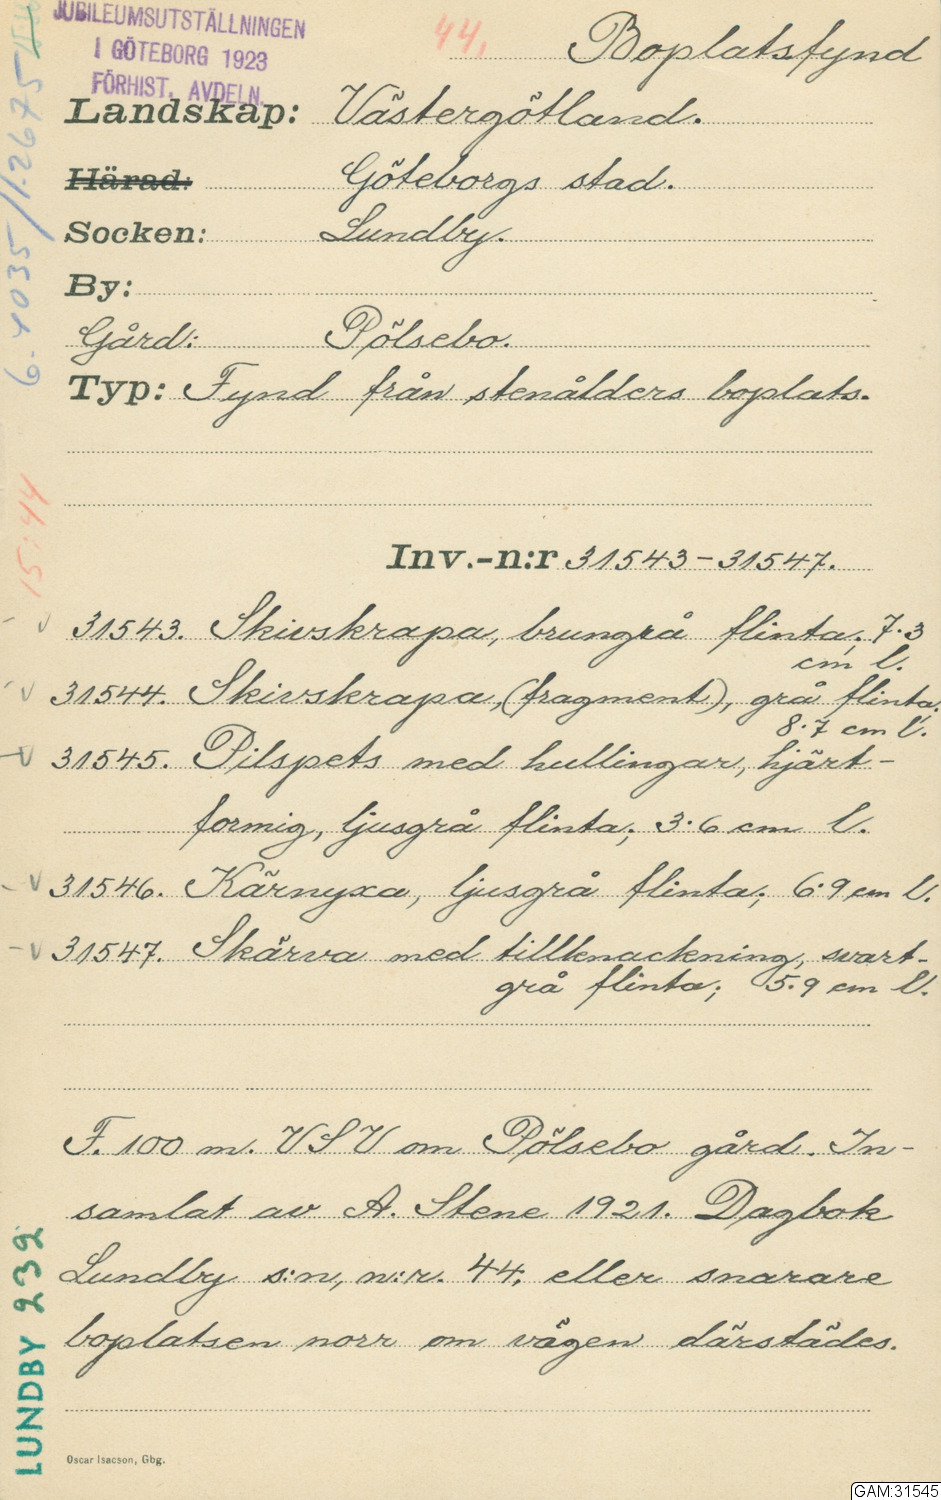 JUBILEUMSUTSTÄLLNINGEN
I GÖTEBORG 1923
FÖRHIST. AVDELN.
44.
Boplatsfynd
Landskap: Västergötland.
Härad: Göteborgs stad.
Socken: Lundby.
By:
Gård: Pölsebo.
Typ: Fynd från stenålders boplats.
Inv.-n:r 31543-31547.
31543. Skivskrapa, brungrå flinta; 7.3
cm l.
31544. Skivskrapa, (fragment), grå flinta;
8.7 cm l.
31545. Pilspets med hullingar, hjärt-
formig, ljusgrå flinta; 3.6 cm l.
31546. Kärnyxa, ljusgrå flinta; 6.9 cm l.
31547. Skärva med tillknackning, svart-
grå flinta; 5.9 cm l.
F. 100 m. VSV om Pölsebo gård. In-
samlat av A. Stene 1921. Dagbok
Lundby s:n, n:r. 44. eller snarare
boplatsen norr om vägen därstädes.
Oscar Isacson, Gbg.
15:44
LUNDBY 232
GAM:31545